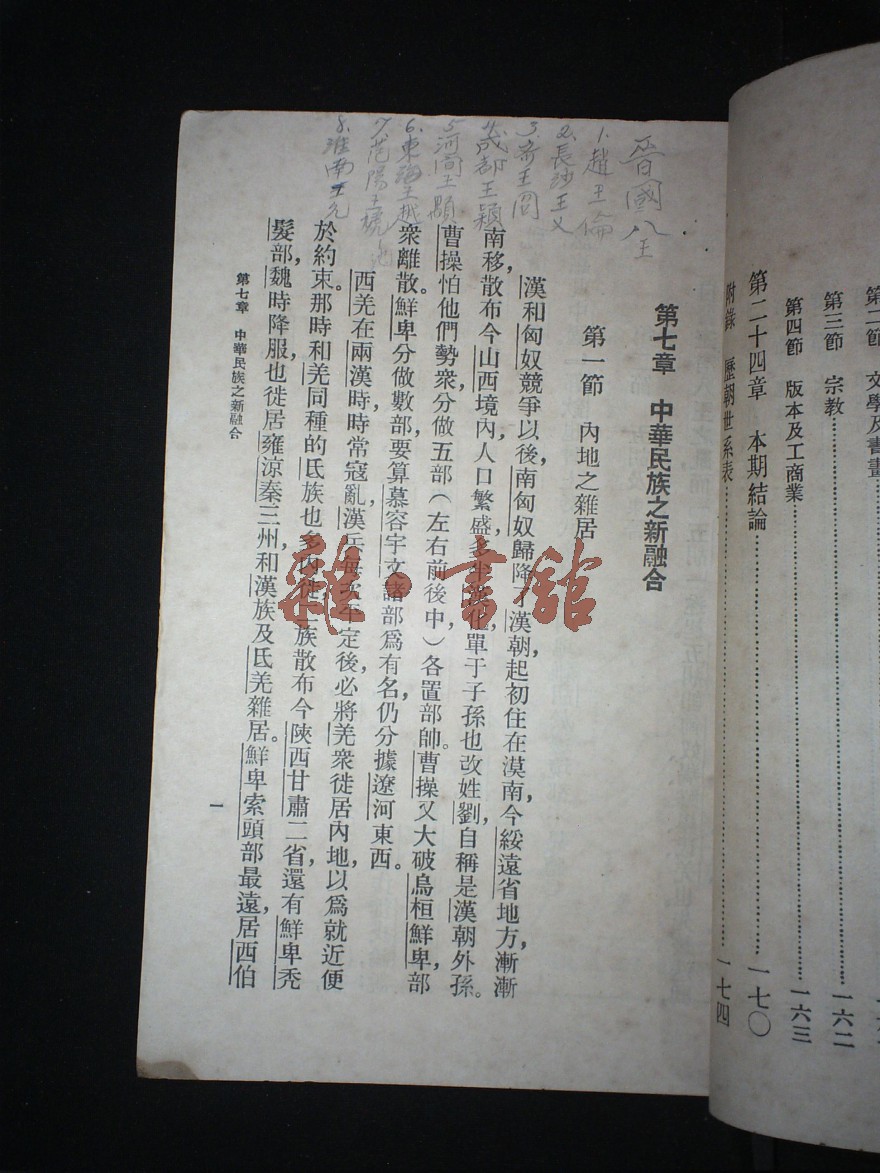 第二節 文學及書畫
第三節 宗教 一六二
第四節 版本及工商業 一六三
第二十四章 本期結論 一七〇
附錄 歷朝世系表 一七四
晉國八王
1.趙王倫
2.長沙王乂
3.齊王冏
4.成都王穎
5.河間王顒
6.東海王越
7.范陽王虓
8.淮南王允
第七章 中華民族之新融合
第一節 內地之雜居
漢和匈奴競爭以後,南匈奴歸降了漢朝,起初住在漠南,今綏遠省地方,漸漸
南移,散布今山西境內,人口繁盛,多半
化,單于子孫也改姓劉,自稱是漢朝外孫。
曹操怕他們勢衆,分做五部(左右前後中)各置部帥。曹操又大破烏桓鮮卑,部
衆離散。鮮卑分做數部,要算慕容宇文諸部爲有名,仍分據遼河東西。
西羌在兩漢時,時常寇亂,漢兵每次平定後,必將羌衆徙居內地,以爲就近便
於約束。那時和羌同種的氐族也多內徙,二族散布今陝西甘肅二省,還有鮮卑禿
髮部,魏時降服,也徙居雍涼秦三州,和漢族及氐羌雜居。鮮卑索頭部最遠,居西伯
第七章 中華民族之新融合
一
雜·書館